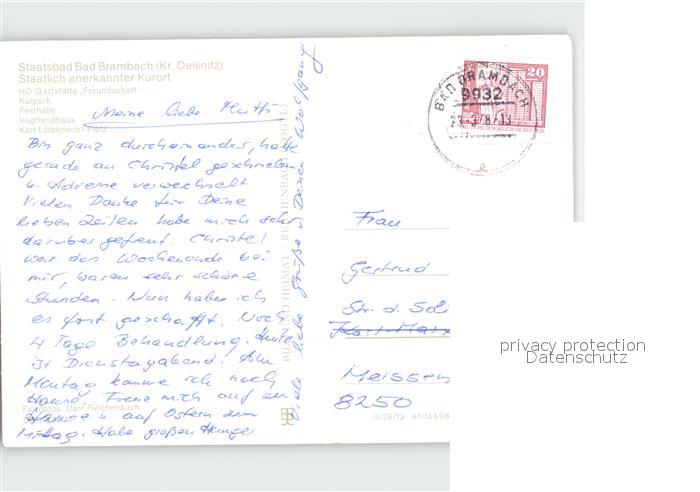 Staatsbad Bad Brambach (Kr. Oelsnitz)
Staatlich anerkannter Kurort
HO-Gaststätte „Freundschaft“
Kurpark
Festhalle
Vogtlandhaus
Karl-Liebknecht-Platz
Meine liebe Mutti
Bin ganz durcheinander, hatte
gerade an Christel geschrieben
u. Adresse verwechselt
Vielen Danke für Deine
lieben Zeilen habe mich sehr
darüber gefreut. Christel
war das Wochenende bei
mir, waren sehr schöne
Stunden. Nun habe ich
es fast geschafft. Noch
4 Tage Behandlung. Heute
ist Dienstagabend. Am
Montag komme ich nach
Hause. Freue mich auf zu
Hause u. auf Ostern zum
Mittag. Habe großen Hunger
Viele liebe Grüße Deine Wolfgang
Farbfotos: Darr, Reichenbach
BILD UND HEIMAT REICHENBACH (VOGTL)
BAD BRAMBACH
9932
20
DEUTSCHE DEMOKRATISCHE REPUBLIK
Frau
Gertrud
Str. d. Soli
Karl-Marx
Meissen
8250
III/26/13 · A1/1441/8
privacy protection
Datenschutz